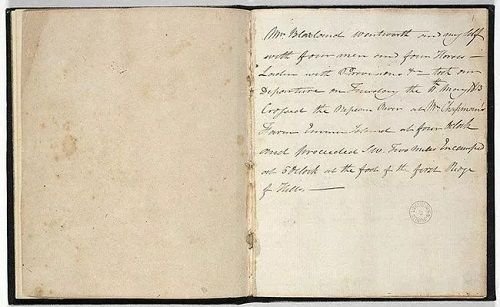 Mr Blaxland Wentworth and myself
with four men and four Horses –
Laden with Provisions &c – took our
Departure on Tuesday the 11 May 1813
Crossed the Nepean River at Mr Chapman's
Farm Emue Island at four O'clock
and proceeded S.W. Two miles Encamped
at 5 O'Clock at the foot of the first Ridge
of Hills —